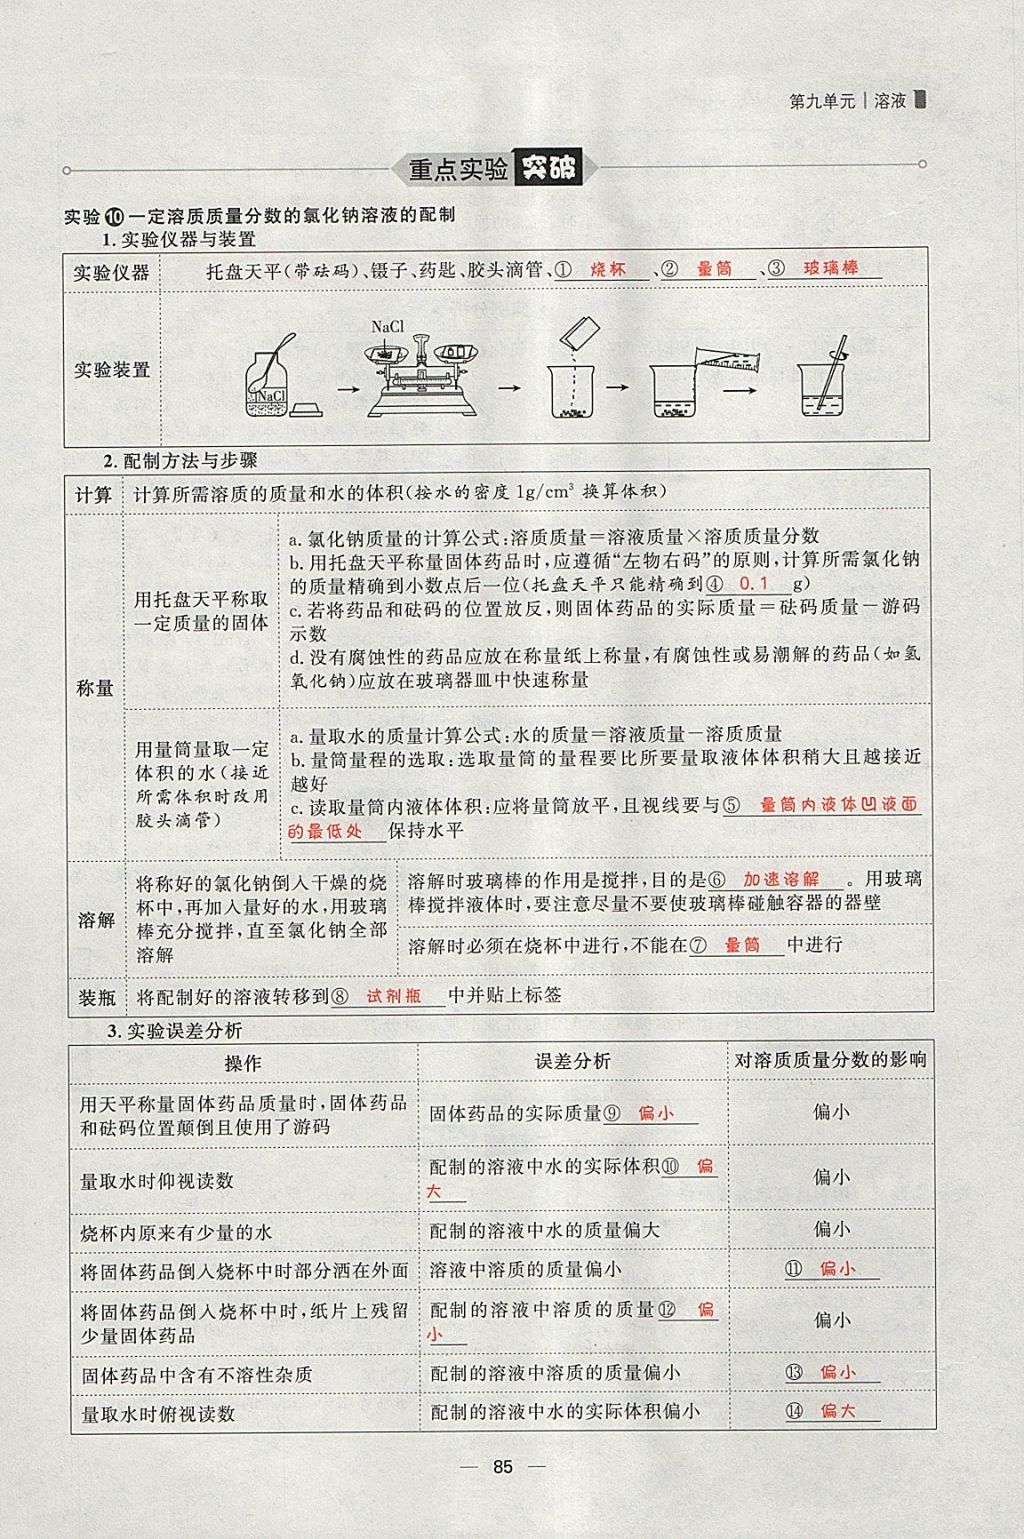 第九单元｜溶液
重点实验 突破
实验⑩一定溶质质量分数的氯化钠溶液的配制
1. 实验仪器与装置
实验仪器 托盘天平(带砝码)、镊子、药匙、胶头滴管、① 烧杯 、② 量筒 、③ 玻璃棒
NaCl
实验装置
NaCl
2. 配制方法与步骤
计算 计算所需溶质的质量和水的体积(按水的密度 1g/cm³ 换算体积)
称量
用托盘天平称取
一定质量的固体
a. 氯化钠质量的计算公式:溶质质量＝溶液质量×溶质质量分数
b. 用托盘天平称量固体药品时,应遵循“左物右码”的原则,计算所需氯化钠
的质量精确到小数点后一位(托盘天平只能精确到④ 0.1 g)
c. 若将药品和砝码的位置放反,则固体药品的实际质量＝砝码质量－游码
示数
d. 没有腐蚀性的药品应放在称量纸上称量,有腐蚀性或易潮解的药品(如氢
氧化钠)应放在玻璃器皿中快速称量
用量筒量取一定
体积的水(接近
所需体积时改用
胶头滴管)
a. 量取水的质量计算公式:水的质量＝溶液质量－溶质质量
b. 量筒量程的选取:选取量筒的量程要比所要量取液体体积稍大且越接近
越好
c. 读取量筒内液体体积:应将量筒放平,且视线要与⑤ 量筒内液体凹液面
的最低处 保持水平
溶解
将称好的氯化钠倒入干燥的烧
杯中,再加入量好的水,用玻璃
棒充分搅拌,直至氯化钠全部
溶解
溶解时玻璃棒的作用是搅拌,目的是⑥ 加速溶解 。用玻璃
棒搅拌液体时,要注意尽量不要使玻璃棒碰触容器的器壁
溶解时必须在烧杯中进行,不能在⑦ 量筒 中进行
装瓶 将配制好的溶液转移到⑧ 试剂瓶 中并贴上标签
3. 实验误差分析
操作 误差分析 对溶质质量分数的影响
用天平称量固体药品质量时,固体药品
和砝码位置颠倒且使用了游码
固体药品的实际质量⑨ 偏小
偏小
量取水时仰视读数
配制的溶液中水的实际体积⑩ 偏
大
偏小
烧杯内原来有少量的水 配制的溶液中水的质量偏大 偏小
将固体药品倒入烧杯中时部分洒在外面 溶液中溶质的质量偏小 ⑪ 偏小
将固体药品倒入烧杯中时,纸片上残留
少量固体药品
配制的溶液中溶质的质量⑫ 偏
小
偏小
固体药品中含有不溶性杂质 配制的溶液中溶质的质量偏小 ⑬ 偏小
量取水时俯视读数 配制的溶液中水的实际体积偏小 ⑭ 偏大
— 85 —